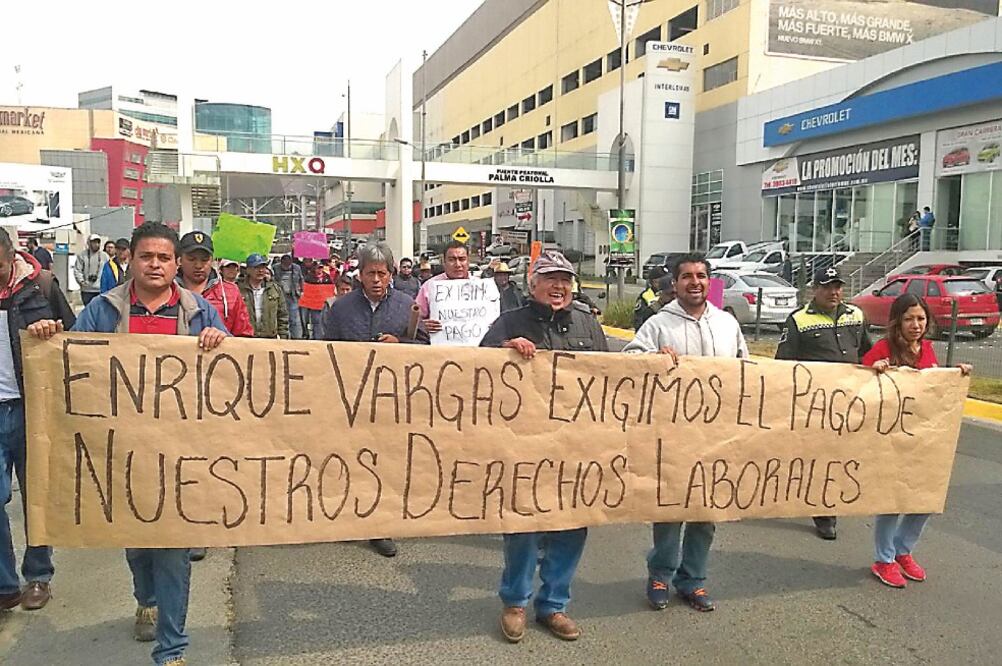 MÁS ALTO, MÁS GRANDE,
MÁS FUERTE, MÁS BMW X1.
NUEVO BMW X1.
CHEVROLET
INTERLOMAS
GM
CHEVROLET
GRAN CARRERA
LA PROMOCIÓN DEL MES:
HXQ
PUENTE PEATONAL
PALMA CRIOLLA
EXIGIMOS
NUESTRO
PAGO
ENRIQUE VARGAS EXIGIMOS EL PAGO DE
NUESTROS DERECHOS LABORALES